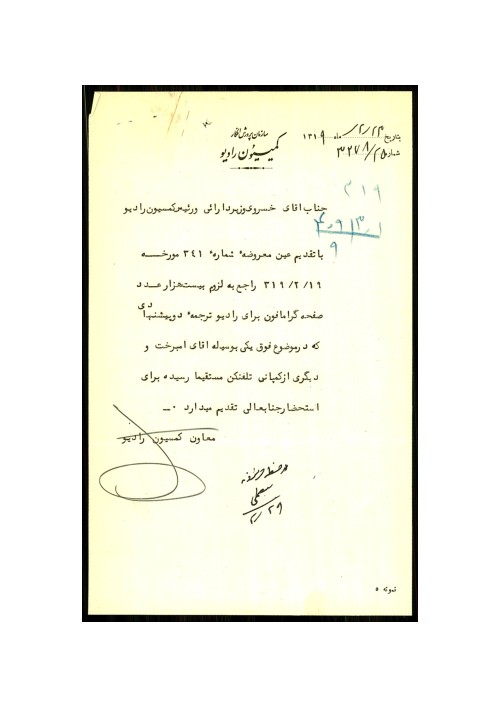 سازمان پرورش افکار
کمیسیون رادیو
بتاریخ ۲/۲۳ ماه ۱۳۱۹
شماره ۳۲۷۸/۲۵
۳۱۹
جناب اقای خسروی وزیر دارائی ورئیس کمسیون رادیو
۹
با تقدیم عین معروضه شماره ۳۴۱ مورخــــه
۳۱۹/۲/۱۹ راجع به لزوم بیست هزار عــدد
صفحه گرامافون برای رادیو ترجمه دو پیشنهادی
که درموضوع فوق یکی بوسیله اقای امبرخت و
دیگری از کمپانی تلفنکن مستقیما رسیده برای
استحضار جنابعالی تقدیم میدارد ۰ــ
معاون کمسیون رادیو
۲/۲۹
نمونه ۵